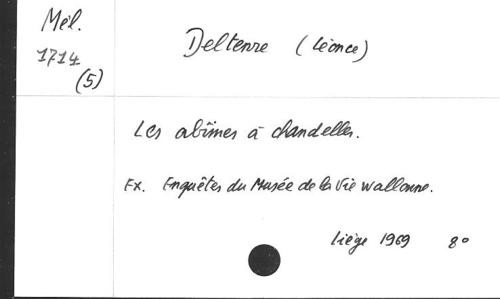 Mél.
1714
(5)
Deltenre (Léonce)
Les abîmes à chandelles.
Ex. Enquêtes du Musée de la Vie wallonne.
Liège 1969 8°